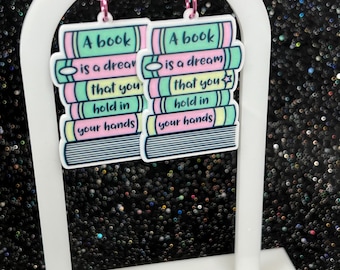 A book
is a dream
that you
hold in
your hands
A book
is a dream
that you
hold in
your hands